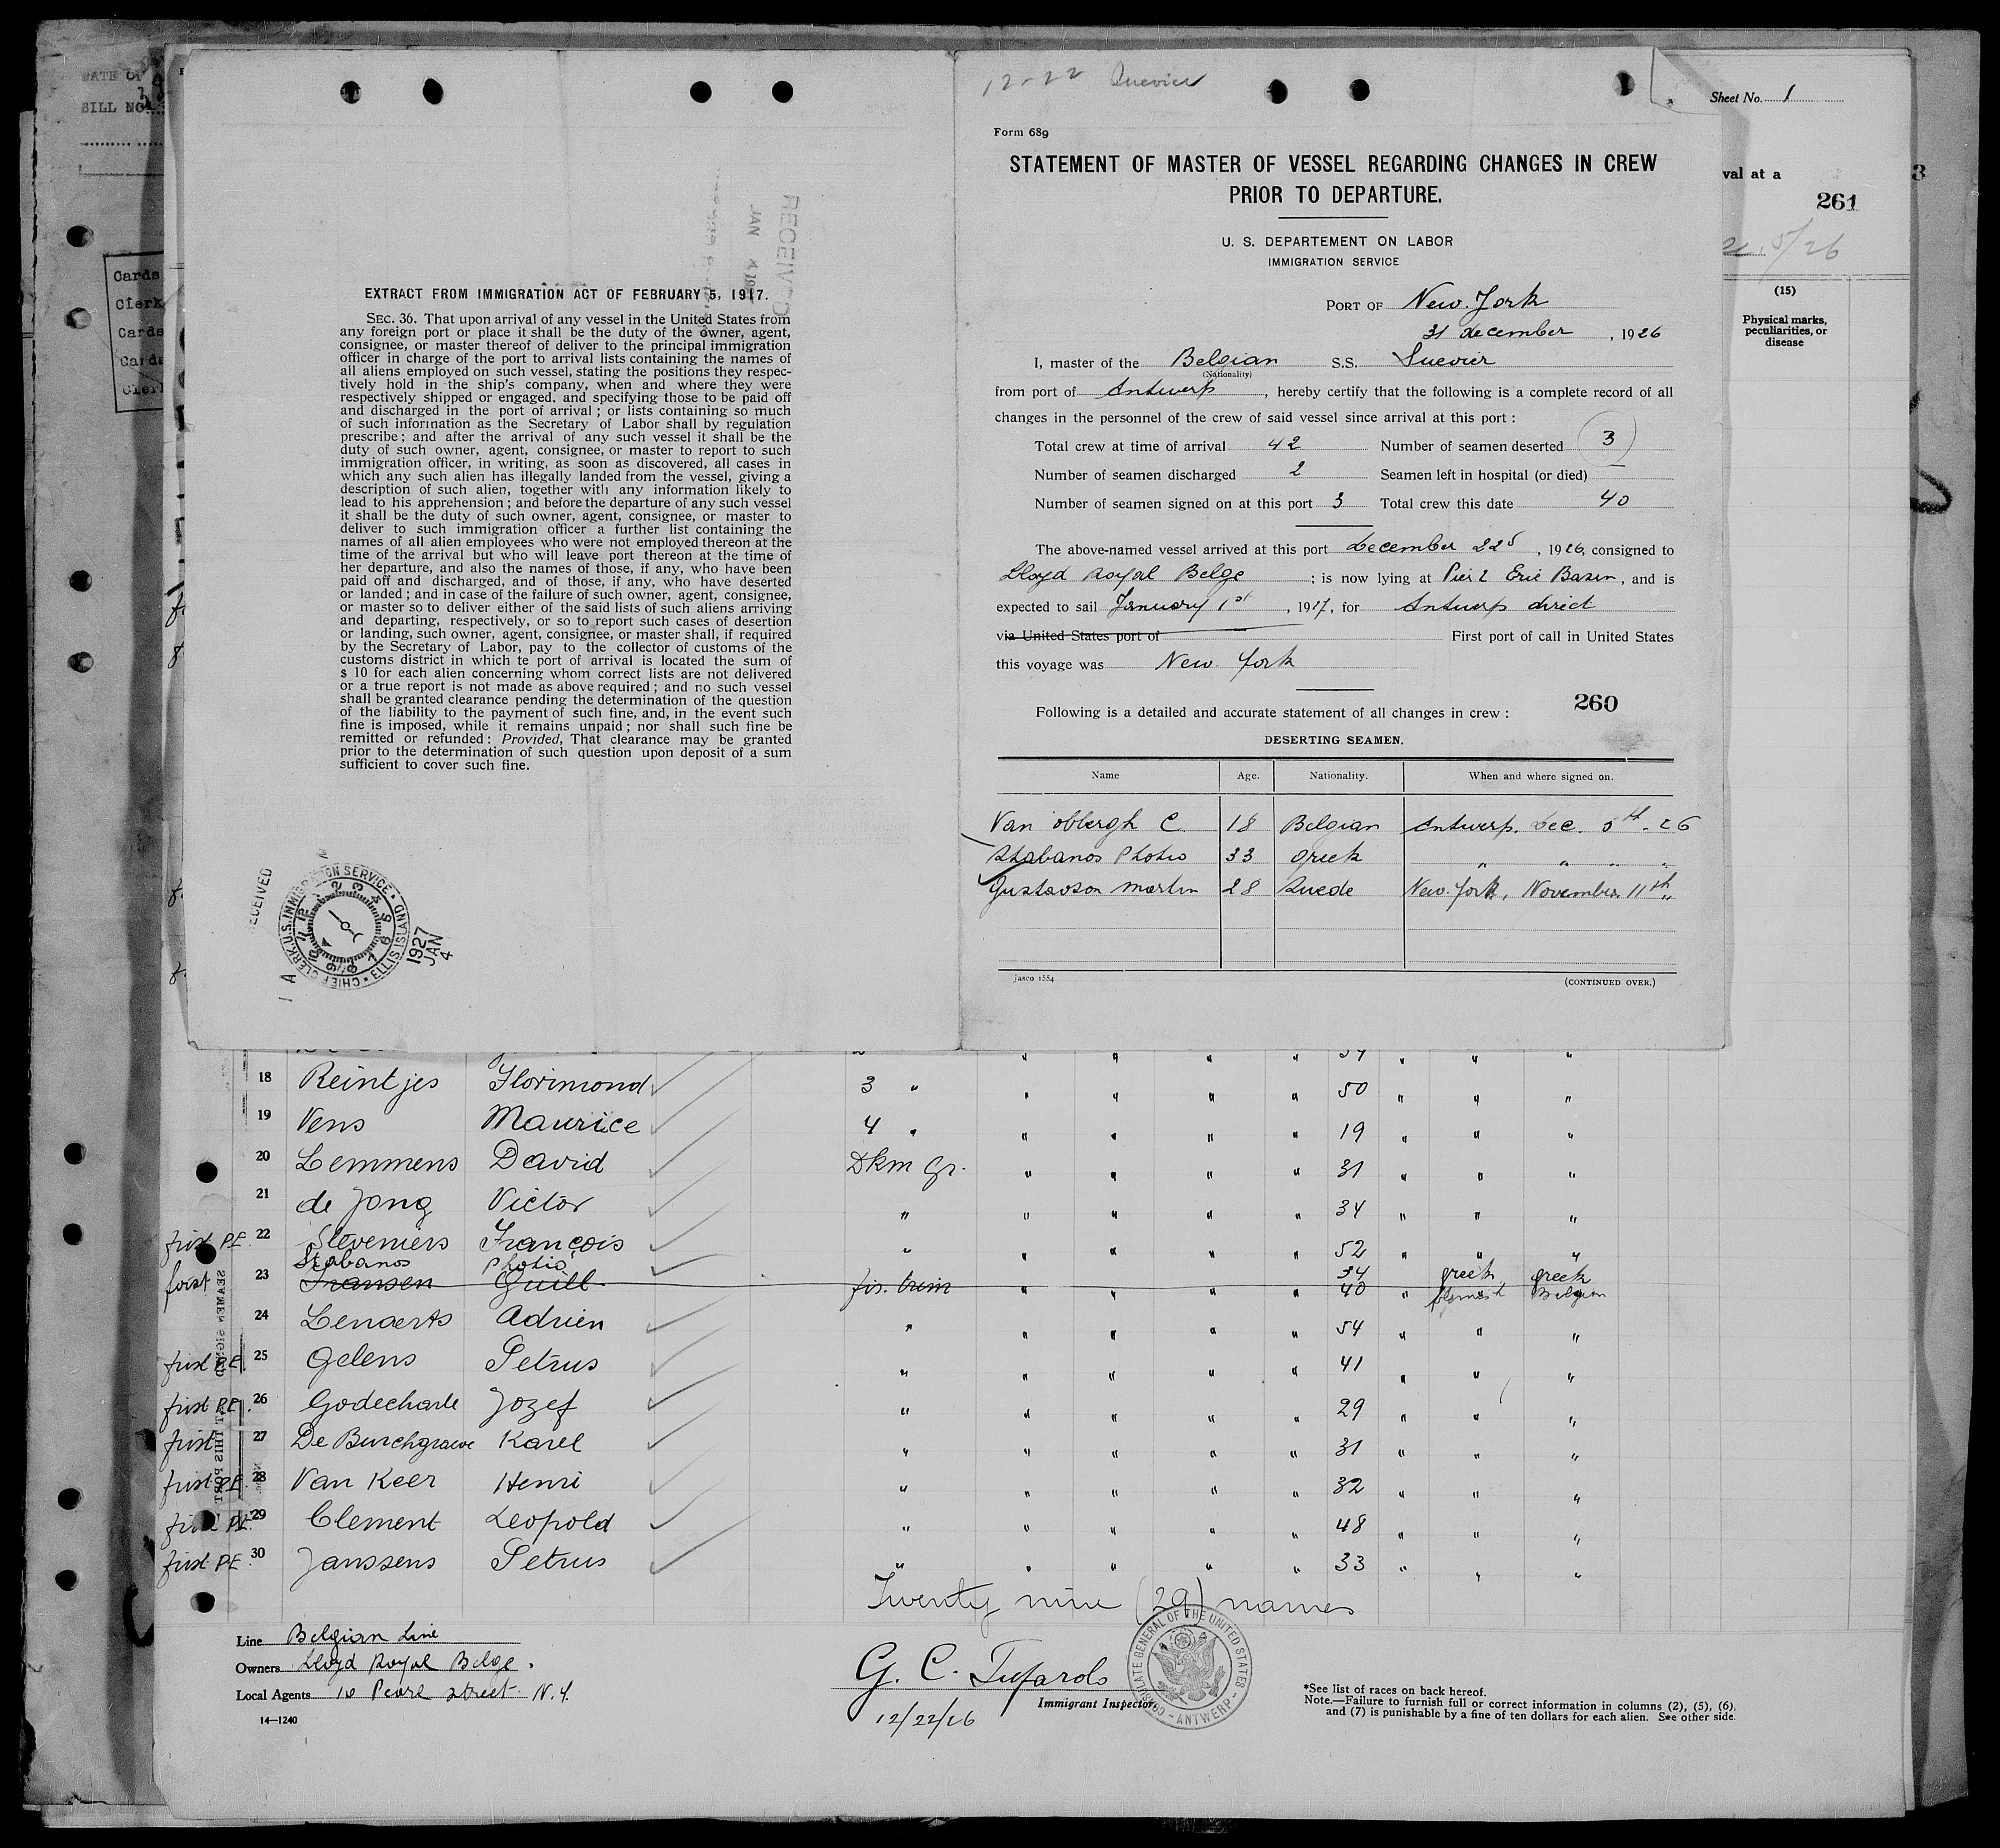 DATE OF
BILL NO.
Cards
Clerk
Cards
Cards
Clerk
RECEIVED
JAN 4 19
EXTRACT FROM IMMIGRATION ACT OF FEBRUARY 5, 1917.
SEC. 36. That upon arrival of any vessel in the United States from
any foreign port or place it shall be the duty of the owner, agent,
consignee, or master thereof to deliver to the principal immigration
officer in charge of the port to arrival lists containing the names of
all aliens employed on such vessel, stating the positions they respec-
tively hold in the ship's company, when and where they were
respectively shipped or engaged. and specifying those to be paid off
and discharged in the port of arrival; or lists containing so much
of such information as the Secretary of Labor shall by regulation
prescribe; and after the arrival of any such vessel it shall be the
duty of such owner, agent, consignee, or master to report to such
immigration officer, in writing, as soon as discovered, all cases in
which any such alien has illegally landed from the vessel, giving a
description of such alien, together with any information likely to
lead to his apprehension; and before the departure of any such vessel
it shall be the duty of such owner, agent, consignee, or master to
deliver to such immigration officer a further list containing the
names of all alien employees who were not employed thereon at the
time of the arrival but who will leave port thereon at the time of
her departure, and also the names of those, if any, who have been
paid off and discharged, and of those, if any, who have deserted
or landed; and in case of the failure of such owner, agent, consignee,
or master so to deliver either of the said lists of such aliens arriving
and departing, respectively, or so to report such cases of desertion
or landing, such owner, agent, consignee, or master shall, if required
by the Secretary of Labor, pay to the collector of customs of the
customs district in which te port of arrival is located the sum of
$ 10 for each alien concerning whom correct lists are not delivered
or a true report is not made as above required; and no such vessel
shall be granted clearance pending the determination of the question
of the liability to the payment of such fine, and, in the event such
fine is imposed, while it remains unpaid; nor shall such fine be
remitted or refunded: Provided, That clearance may be granted
prior to the determination of such question upon deposit of a sum
sufficient to cover such fine.
RECEIVED
CHIEF CLERK, U.S. IMMIGRATION SERVICE • ELLIS ISLAND •
1927 JAN 4
12-22 Suevier
Form 689
STATEMENT OF MASTER OF VESSEL REGARDING CHANGES IN CREW
PRIOR TO DEPARTURE.
U. S. DEPARTEMENT ON LABOR
IMMIGRATION SERVICE
PORT OF New York
31 december, 1926
I, master of the Belgian S.S. Suevier
(Nationality)
from port of Antwerp, hereby certify that the following is a complete record of all
changes in the personnel of the crew of said vessel since arrival at this port:
Total crew at time of arrival 42 Number of seamen deserted 3
Number of seamen discharged 2 Seamen left in hospital (or died) —
Number of seamen signed on at this port 3 Total crew this date 40
The above-named vessel arrived at this port December 22d, 1926, consigned to
Lloyd Royal Belge; is now lying at Pier 2 Erie Basin, and is
expected to sail January 1st, 1927, for Antwerp direct
via United States port of First port of call in United States
this voyage was New York
260
Following is a detailed and accurate statement of all changes in crew:
DESERTING SEAMEN.
Name Age. Nationality. When and where signed on.
Van obbergh C 18 Belgian Antwerp. Dec. 5th. 26
Stabanos Photio 33 greek " " " "
Gustavson Martin 28 Suede New-York, November 11th "
Jasco 1554 (CONTINUED OVER.)
Sheet No. 1
val at a
261
5/26
(15)
Physical marks,
peculiarities, or
disease
3
18 Reintjes Florimond 3 " " " " " 50 " " "
19 Vens Maurice 4 " " " " " 19 " " "
20 Lemmens David Dkm Gr. " " " " 31 " " "
21 de Jong Victor " " " " " 34 " " "
first P.E. 22 Steveniers François " " " " " 52 " " "
Stabanos Photio 34 greek greek
first 23 Fransen Guill fir. trim " " " " 40 " flemish Belgian
24 Lenaerts Adrien " " " " " 54 " " "
first P.E. 25 Gelens Petrus " " " " " 41 " " "
first P.E. 26 Godecharle Jozef " " " " " 29 " " "
first 27 De Burchgraeve Karel " " " " " 31 " " "
first P.E. 28 Van Keer Henri " " " " " 32 " " "
first P.E. 29 Clement Leopold " " " " " 48 " " "
first P.E. 30 Janssens Petrus " " " " " 33 " " "
Twenty nine (29) names
Line Belgian Line
Owners Lloyd Royal Belge.
Local Agents 10 Pearl street N.Y.
14—1240
Immigrant Inspector.
12/22/26
CONSULATE GENERAL OF THE UNITED STATES - ANTWERP -
*See list of races on back hereof.
Note.—Failure to furnish full or correct information in columns (2), (5), (6),
and (7) is punishable by a fine of ten dollars for each alien. See other side.